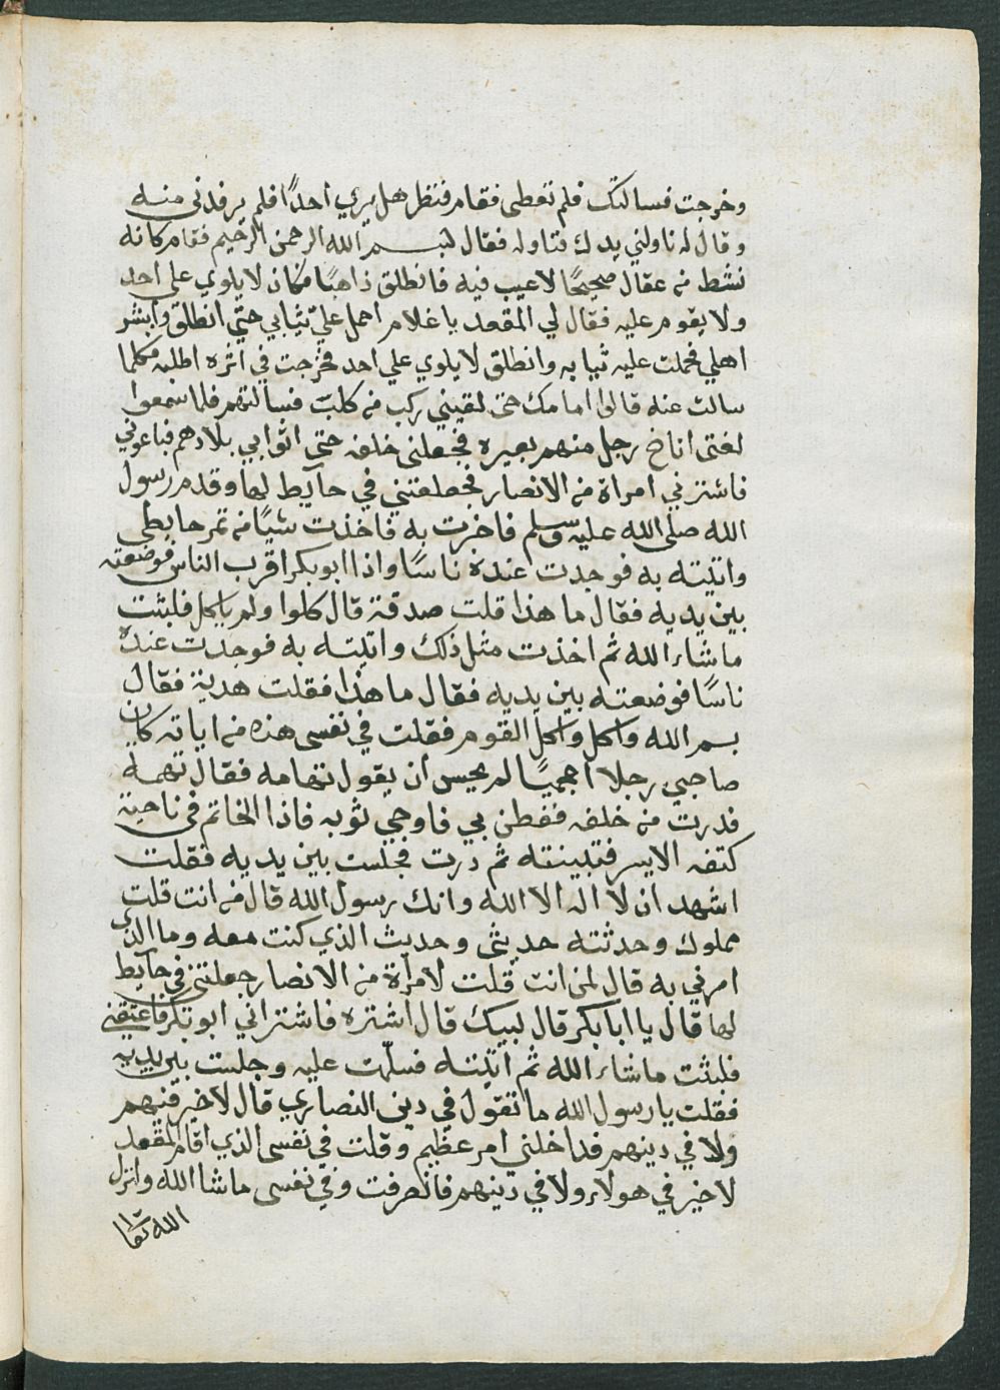 وخرجت فسالتك فلم تعطى فقام فنظر هل يري احدًا فلم ير فدنى منه
وقال له ناولني يدك فناوله فقال بسم الله الرحمن الرحيم فقام كانه
نشط من عقال صحيحًا لاعيب فيه فانطلق ذاهبًا فكان لا يلوي على احد
ولا يقوم عليه فقال لي المقعد يا غلام احمل عليّ ثيابي حتي انطلق وابشر
اهلي فحملت عليه ثيابه وانطلق لا يلوي علي احد فخرجت في اثره اطلبه فكلما
سالت عنه قالوا امامك حتى لقيني ركب من كلب فسالتهم فلما سمعوا
لغتى اناخ رجل منهم بعيره فجعلنى خلفه حتى اتوا بي بلادهم فباعوني
فاشترني امراة من الانصار فجعلتني في حآيط لها وقدم رسول
الله صلى الله عليه وسلم فاخبرت به فاخذت شيًا من تمر حايطى
واتيته به فوجدت عنده ناسًا واذا ابو بكر اقرب الناس فوضعته
بين يديه فقال ما هذا قلت صدقة قال كلوا ولم ياكل فلبثت
ماشاء الله ثم اخذت مثل ذلك واتيته به فوجدت عنده
ناسًا فوضعته بين يديه فقال ما هذا فقلت هدية فقال
بسم الله واكل واكل القوم فقلت في نفسى هذه من اياته كان
صاحبي رجلا اعجميًا لم يحسن ان يقول تهامه فقال تهمة
فدرت من خلفه ففطن بي فاوحي ثوبه فاذا الخاتم في ناحية
كتفه الايسر فتبينته ثم درت فجلست بين يديه فقلت
اشهد ان لا اله الا الله وانك رسول الله قال من انت قلت
مملوك وحدثته حديثى وحديث الذي كنت معه وما الذى
امرني به قال لمن انت قلت لامرأة من الانصار جعلتني في حآيط
لها قال يا ابا بكر قال لبيك قال اشتره فاشتراني ابو بكر فاعتقني
فلبثت ماشاء الله ثم اتيته فسلمت عليه وجلست بين يديه
فقلت يا رسول الله ما تقول في دين النصاري قال لاخير فيهم
ولا في دينهم فداخلني امر عظيم وقلت في نفسى الذي اقام المقعد
لاخير في هولاء ولا في دينهم فانصرفت وفي نفسى ماشا الله وانزل
الله تعا